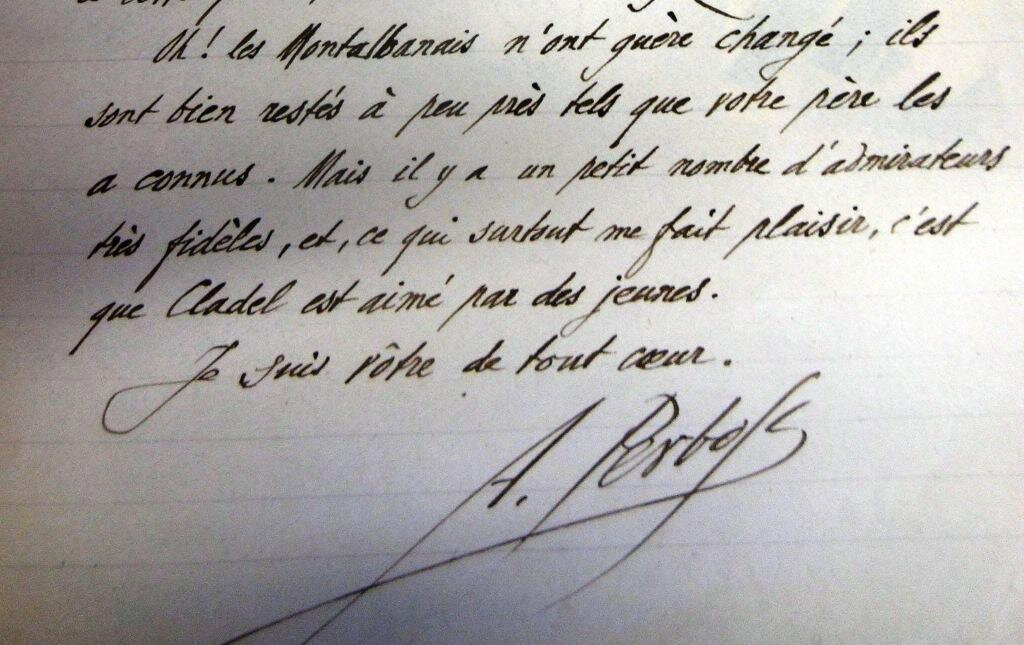 Oh! les Montalbanais n'ont guère changé ; ils
sont bien restés à peu près tels que votre père les
a connus. Mais il y a un petit nombre d'admirateurs
très fidèles, et, ce qui surtout me fait plaisir, c'est
que Cladel est aimé par des jeunes.
Je suis vôtre de tout cœur.
A. Perbosc